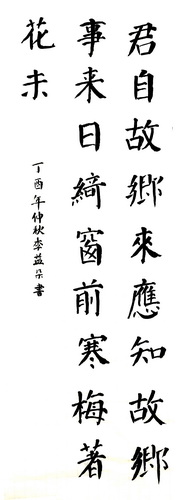 君自故鄉來應知故鄉
事来日綺窗前寒梅著
花未
丁酉年仲秋李益朵書